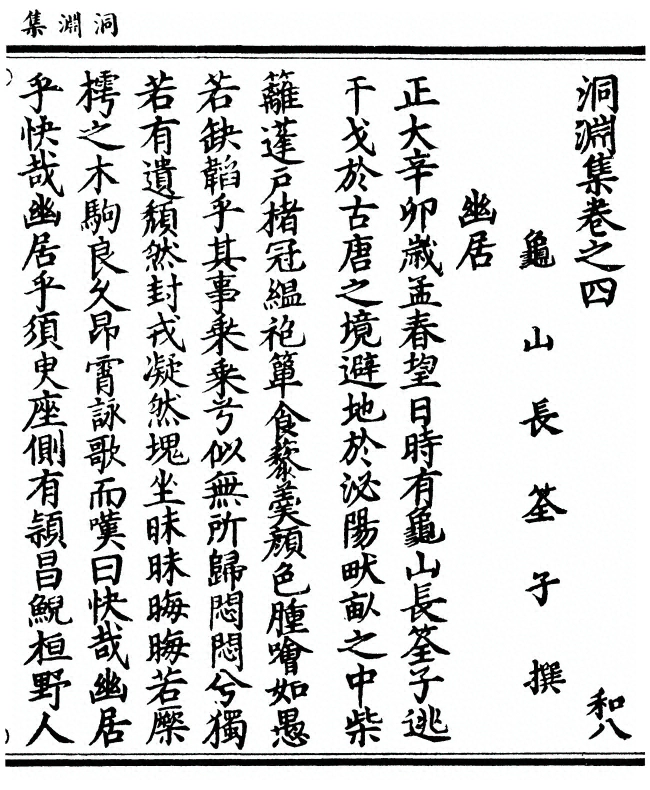 洞淵集
洞淵集卷之四
和八
龜山長筌子撰
幽居
正大辛卯歲孟春望日時有龜山長筌子逃
干戈於古唐之境避地於泌陽畎畝之中柴
籬蓬戶楮冠縕袍簞食藜羹顏色腫噲如愚
若缺韜乎其事乘乘兮似無所歸悶悶兮獨
若有遺頹然封戎凝然塊坐昧昧晦晦若橛
樗之木駒良久昂霄詠歌而嘆曰快哉幽居
乎快哉幽居乎須臾座側有潁昌鯢桓野人